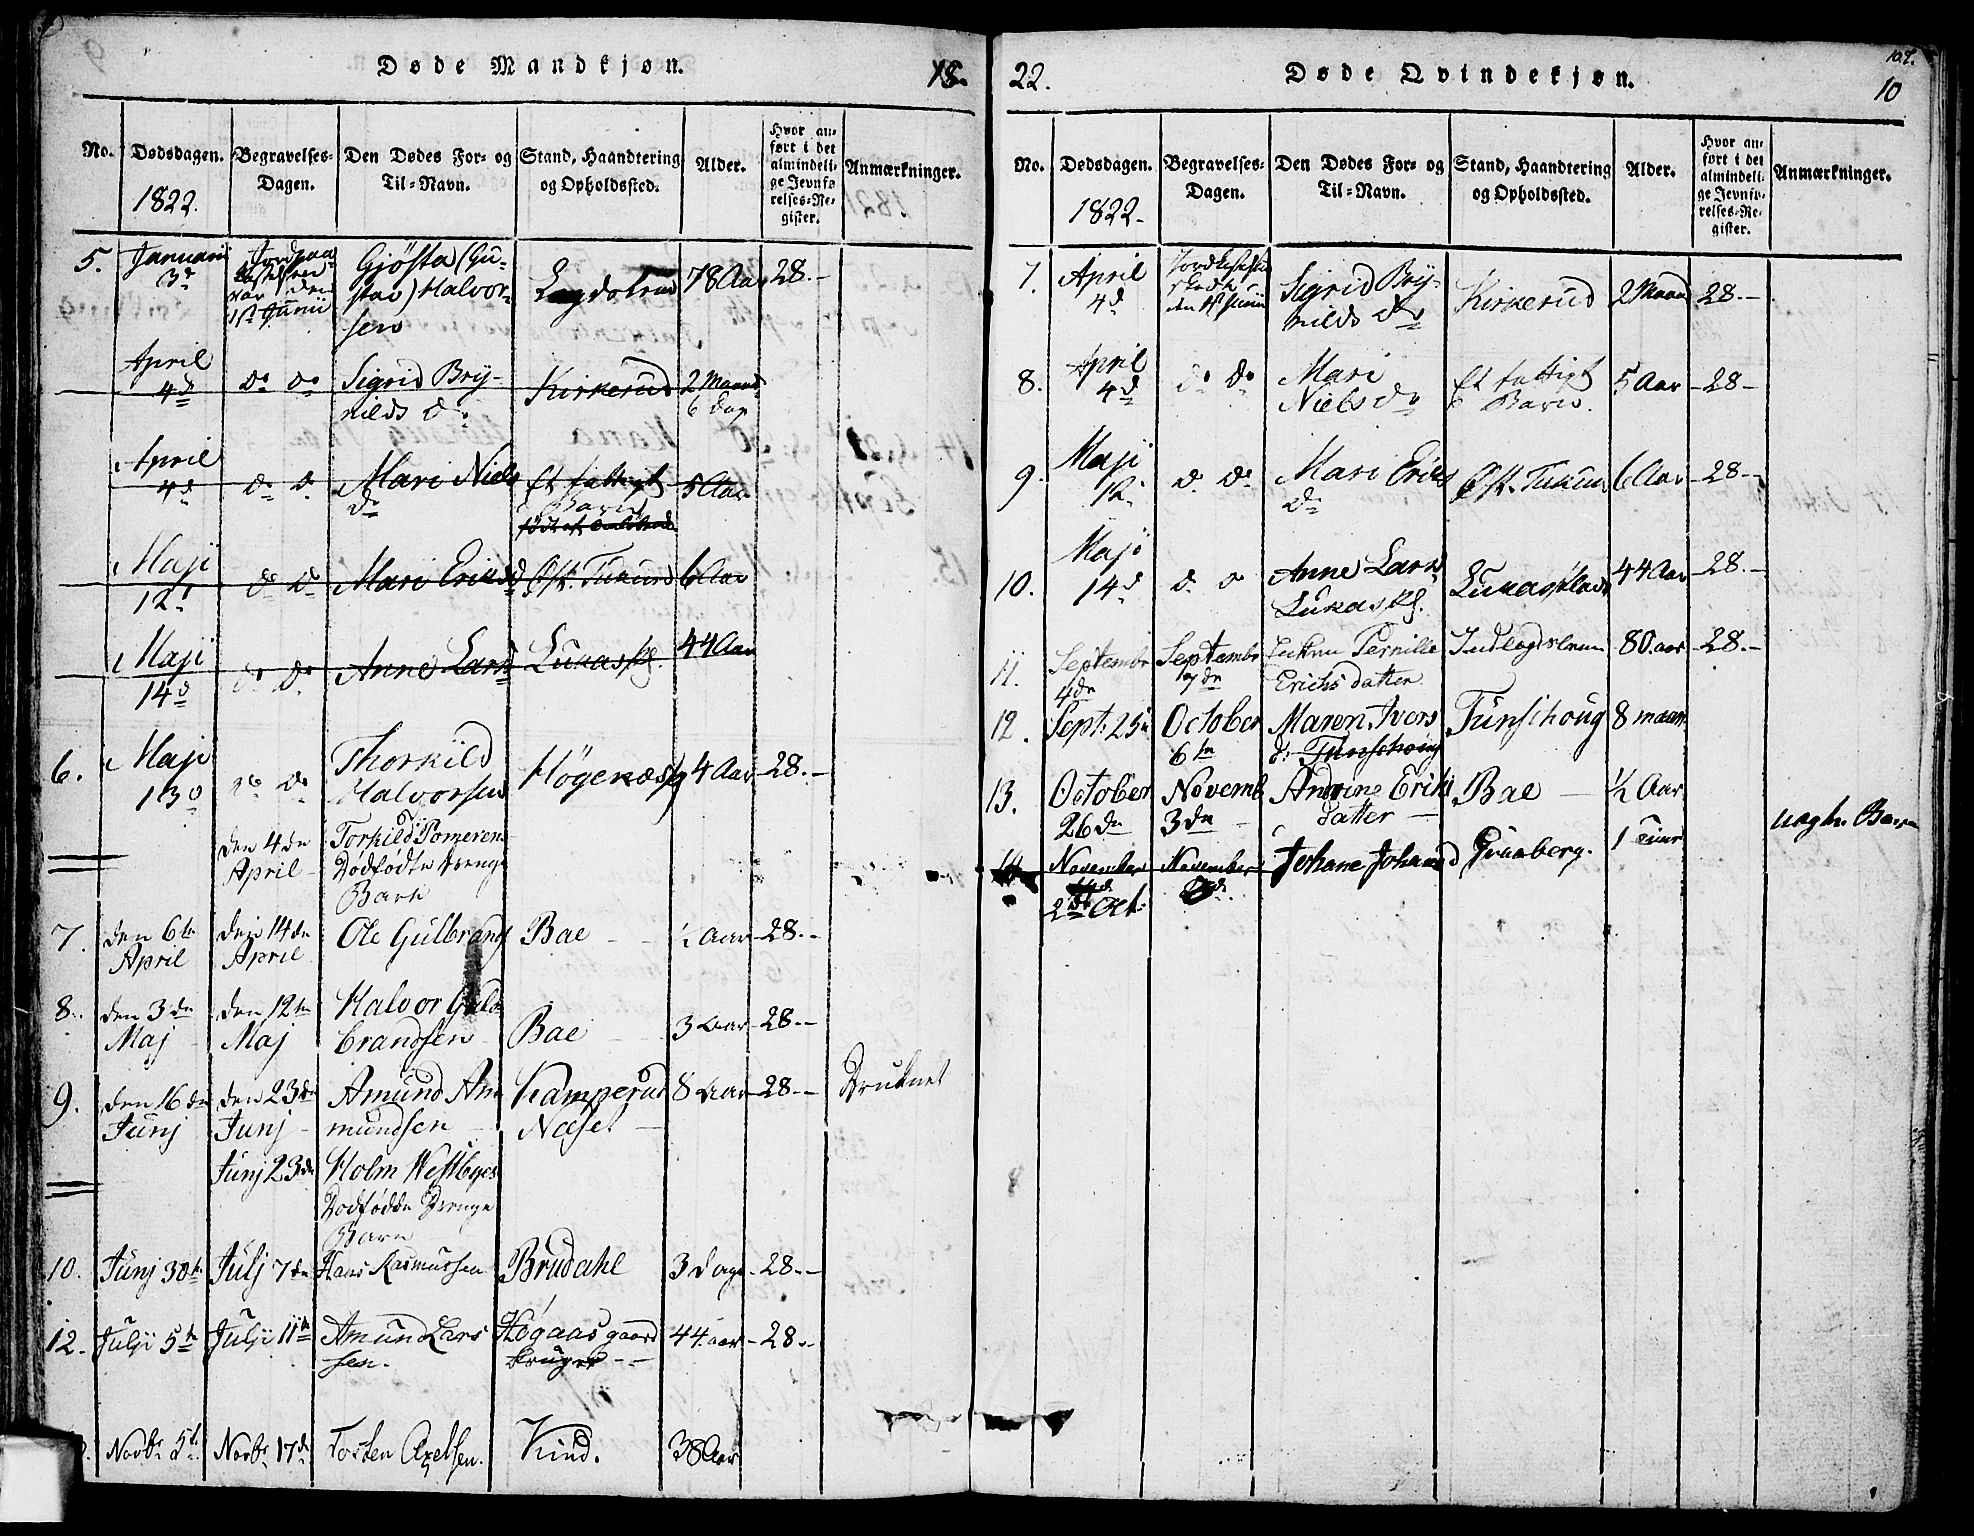 Døde Mandkjøn.
18
No.
Dødsdagen.
1822.
Begravelses-
Dagen.
Den Dødes For- og
Til-Navn.
Stand, Haandtering
og Opholdssted.
Alder.
Hvor an-
ført i det
almindeli-
ge Jevnfø
relses-Re-
gister.
Anmærkninger.
5. Januari 3d
Jordpaa-
var den
1ste Junii
Gjøsta (Gu-
stav) Halvor-
sen
78 Aar 28.-
April 4d do do Sigrid Bry-
nilds Dr Kirkerud 2 Maand
6 Dag
April 4d do do Mari Niels
Dr Et fattigt
Barn 5 Aar
Maji 12t do do Mari Eriksd Øst. Tukun 6 Aar
Maji 14d do do Anne Larsd Lukaspl. 44 Aar
6. Maji 13d do do Thorkild
Halvorsen 4 Aar 28.-
den 4de
April
Torkild Pomerens
Dødfødte Drenge
Barn
7. den 6te
April den 14de
April Ole Gulbrands Bae ½ Aar 28.-
8. den 3de
Maj den 12te
Maj Halvor Gul-
brandsen Bae 3 Aar 28.-
9. den 16de
Junj den 23de
Junj Amund Am
mundsen Kamperud
Næset 8 Aar 28.- Druknet
Junj 23de Holm Westbyes
Dødfødde Drenge
Barn
10. Junj 30te Julj 7de Hans Rasmussen Brudahl 3 dage 28.-
12. Julji 5te Julji 11te Amund Lars
sen. Høgaas gaard
bruger 44 aar 28.-
Novbr 5te Novbr 17de Tosten Axelsen. Kind. 38 Aar
22.
Døde Qvindekjøn.
102.
10
No.
Dødsdagen.
1822.
Begravelses-
Dagen.
Den Dødes For- og
Til-Navn.
Stand, Haandtering
og Opholdssted.
Alder.
Hvor an-
ført i det
almindeli-
ge Jevnfø-
relses-Re-
gister.
Anmærkninger.
7. April
4d
Sigrid Bry-
nilds Dr Kirkerud 2 Maand 28.-
8. April
4d do do Mari
Niels Dr Et fattigt
Barn. 5 Aar 28-
9. Maji
12. do do Mari Eriks
Dr Øst. Tukun 6 Aar 28.-
10. Maji
14d do do Anne Larsd
Lukaspl. 44 Aar 28.-
11. Septembr
4de Septembr
7de Pernille
Erichsdatter 80 aar 28.-
12. Sept. 25de October
6te Maren Ivers
dr Funschoug Funschoug 8 maan.
13. October
26de Novemb
3de Andrine Eriks
datter Bae ½ Aar
uægte Barn
November
2de Oct. November Johane Johansd 1